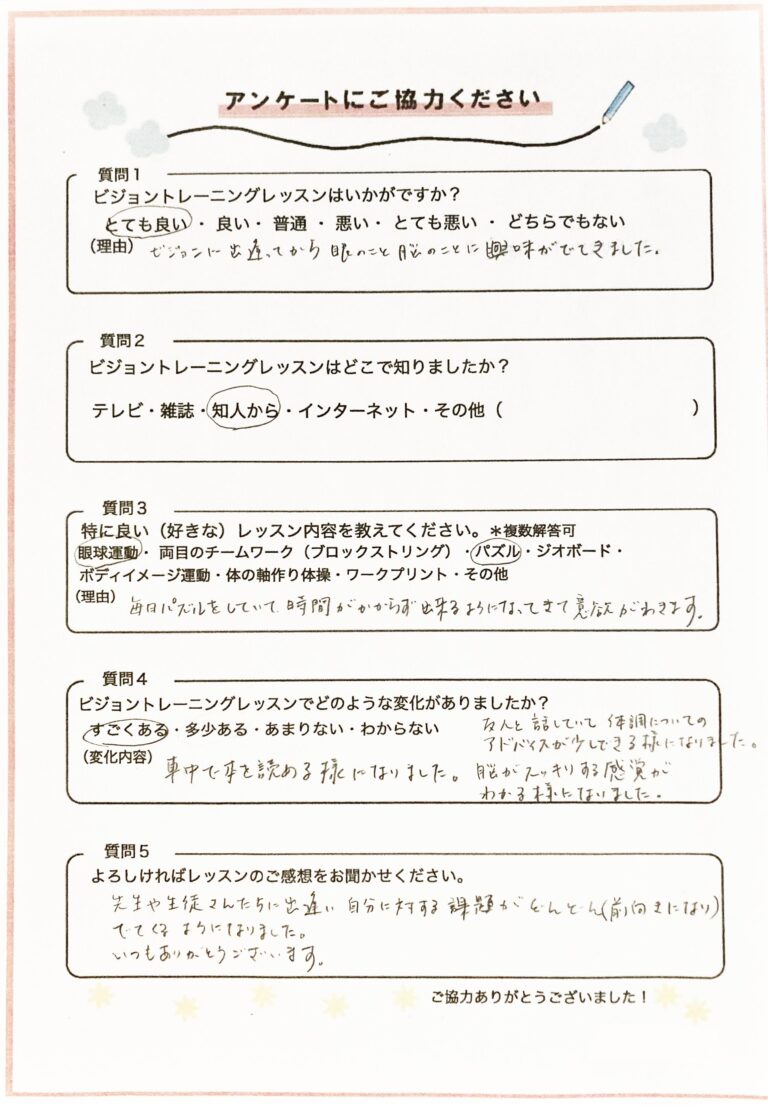 アンケートにご協力ください
質問1
ビジョントレーニングレッスンはいかがですか？
とても良い ・ 良い・ 普通 ・ 悪い・ とても悪い ・ どちらでもない
（理由） ビジョンに出逢ってから 眼のこと 脳のことに興味がでてきました。
質問2
ビジョントレーニングレッスンはどこで知りましたか？
テレビ・雑誌・知人から・インターネット・その他（　　　）
質問3
特に良い（好きな）レッスン内容を教えてください。＊複数解答可
眼球運動・ 両目のチームワーク（ブロックストリング）・パズル・ジオボード・
ボディイメージ運動・体の軸作り体操・ワークプリント・その他
（理由） 毎日パズルをしていて 時間がかからず出来るようになってきて意欲がわきます。
質問4
ビジョントレーニングレッスンでどのような変化がありましたか？
すごくある・多少ある・あまりない・わからない
（変化内容） 車中で本を読める様になりました。
友人と話していて 体調についての
アドバイスが少しできる様になりました。
脳がスッキリする感覚が
わかる様になりました。
質問5
よろしければレッスンのご感想をお聞かせください。
先生や生徒さんたちに出逢い 自分に対する課題がどんどん(前向きになり)
でてくるようになりました。
いつもありがとうございます。
ご協力ありがとうございました！